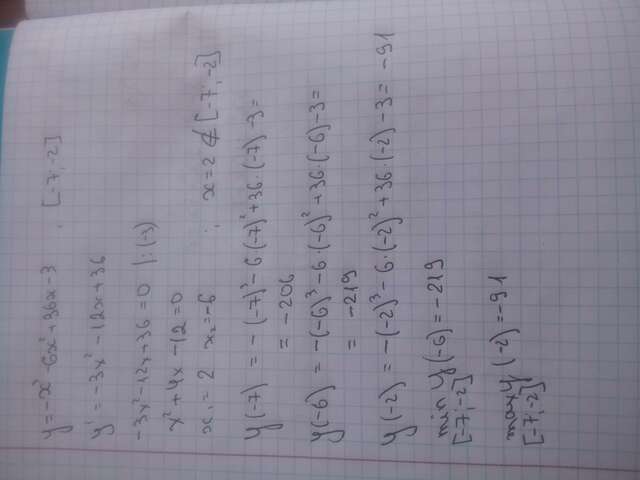 y = -x³ - 6x² + 36x - 3 , [-7; -2]
y' = -3x² - 12x + 36
-3x² - 12x + 36 = 0 |:(-3)
x² + 4x - 12 = 0
x₁ = 2 x₂ = -6 ; x = 2 ∉ [-7; -2]
y(-7) = -(-7)³ - 6·(-7)² + 36·(-7) - 3 =
= -206
y(-6) = -(-6)³ - 6·(-6)² + 36·(-6) - 3 =
= -219
y(-2) = -(-2)³ - 6·(-2)² + 36·(-2) - 3 = -91
min y(-6) = -219
[-7; -2]
max y(-2) = -91
[-7; -2]